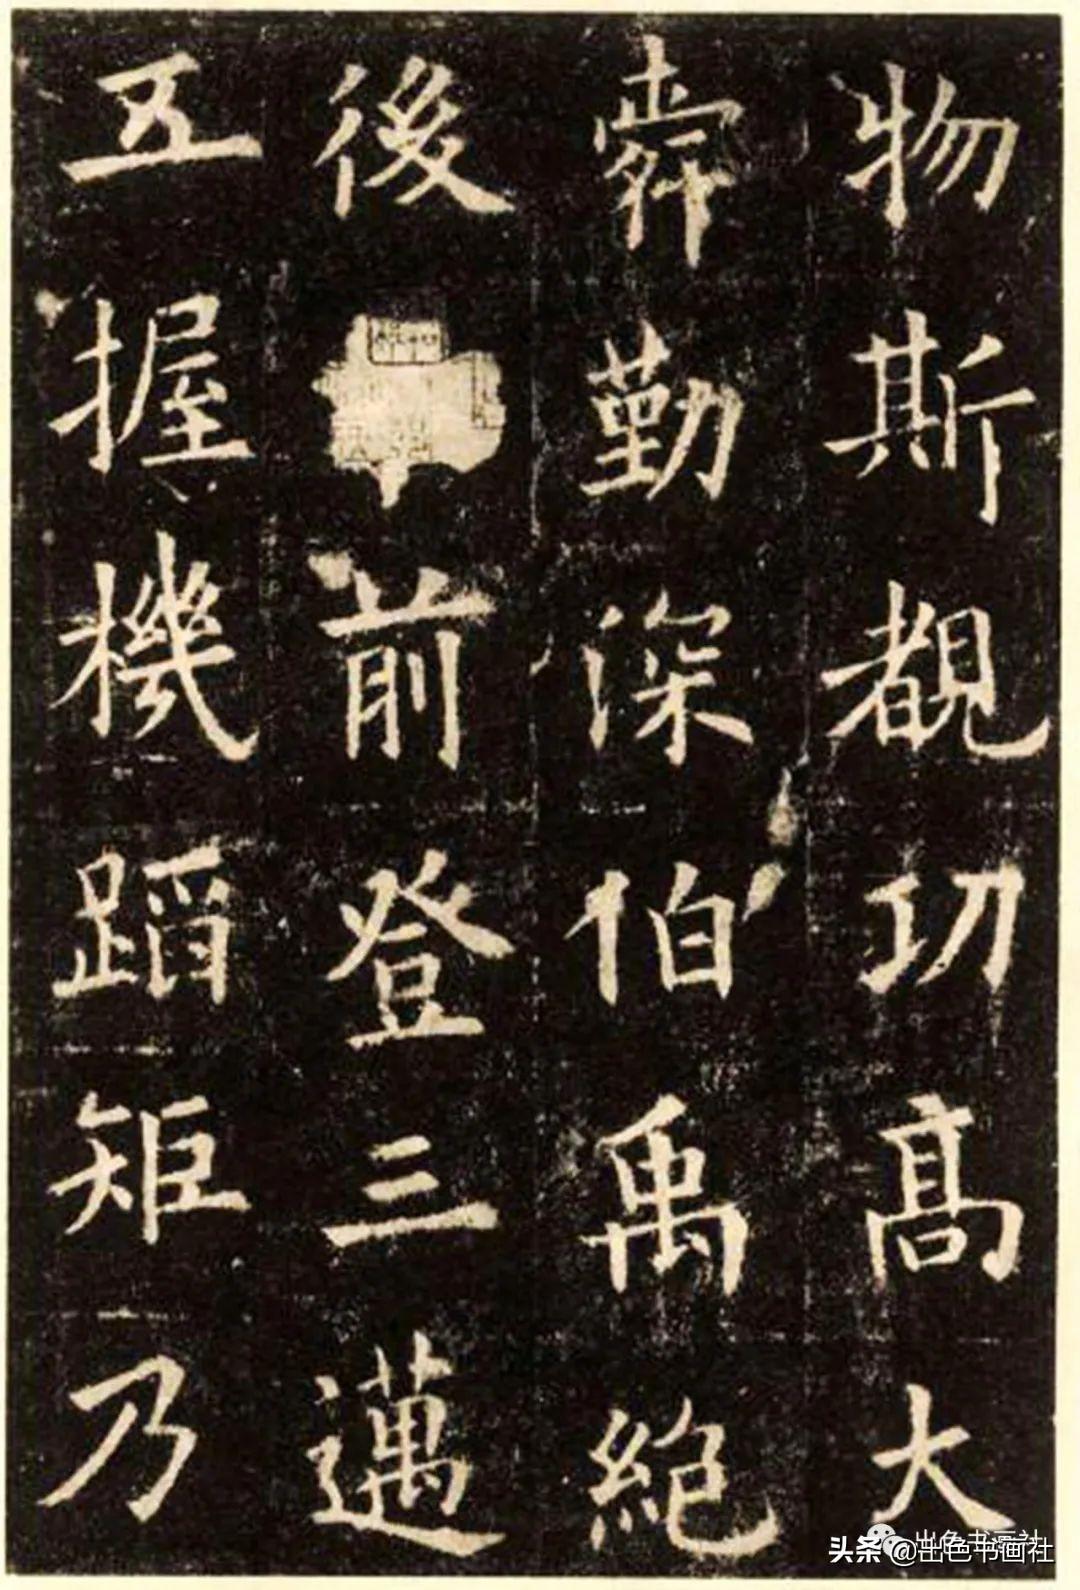 物斯覩功高大
舜勤深伯禹絶
後前登三邁
五握機蹈矩乃
头条@出色书画社
出色书画社